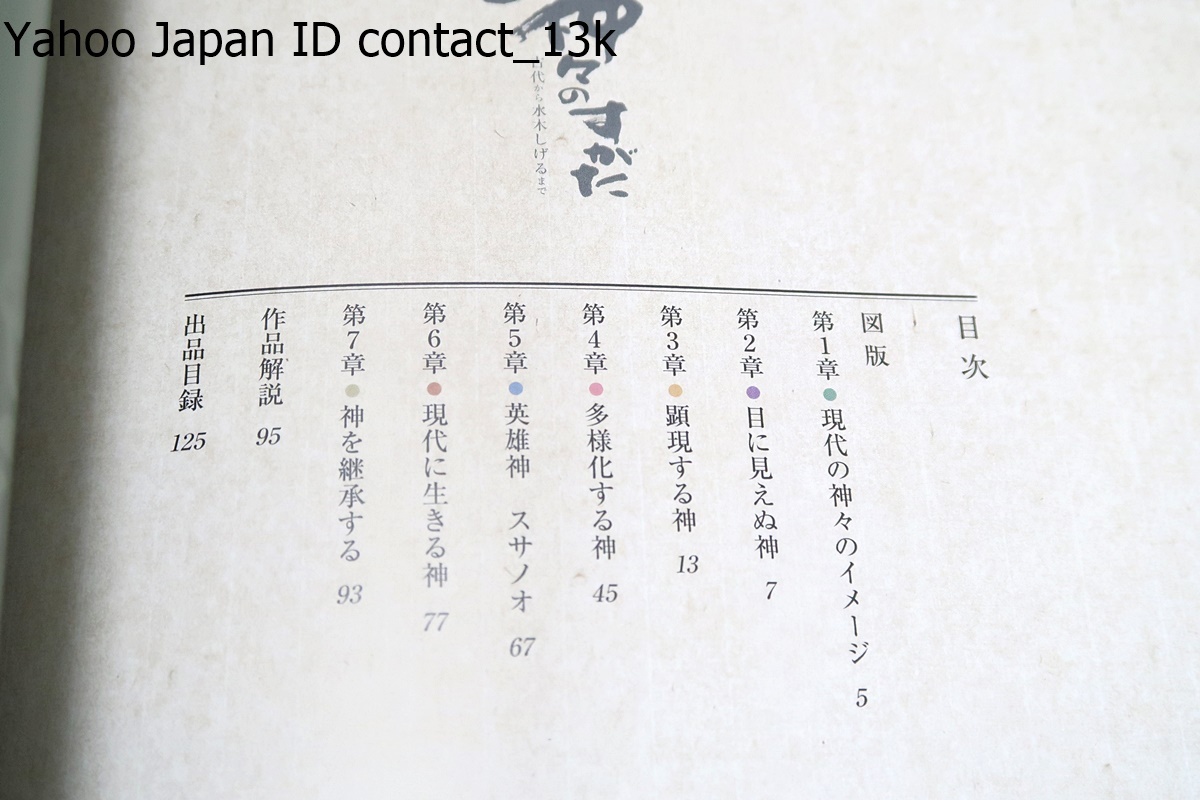 Yahoo Japan ID contact_13k
神々のすがた
古代から水木しげるまで
目次
図版
第1章●現代の神々のイメージ 5
第2章●目に見えぬ神 7
第3章●顕現する神 13
第4章●多様化する神 45
第5章●英雄神 スサノオ 67
第6章●現代に生きる神 77
第7章●神を継承する 93
作品解説 95
出品目録 125